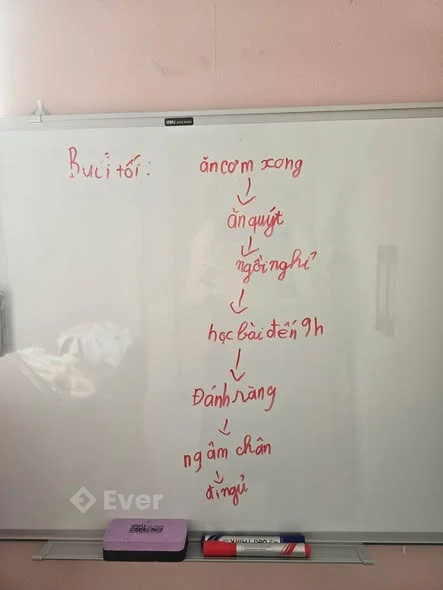 Buổi tối: ăn cơm xong
ăn quýt
ngồi nghỉ
học bài đến 9h
Đánh răng
ngâm chân
đi ngủ
deli
Ever